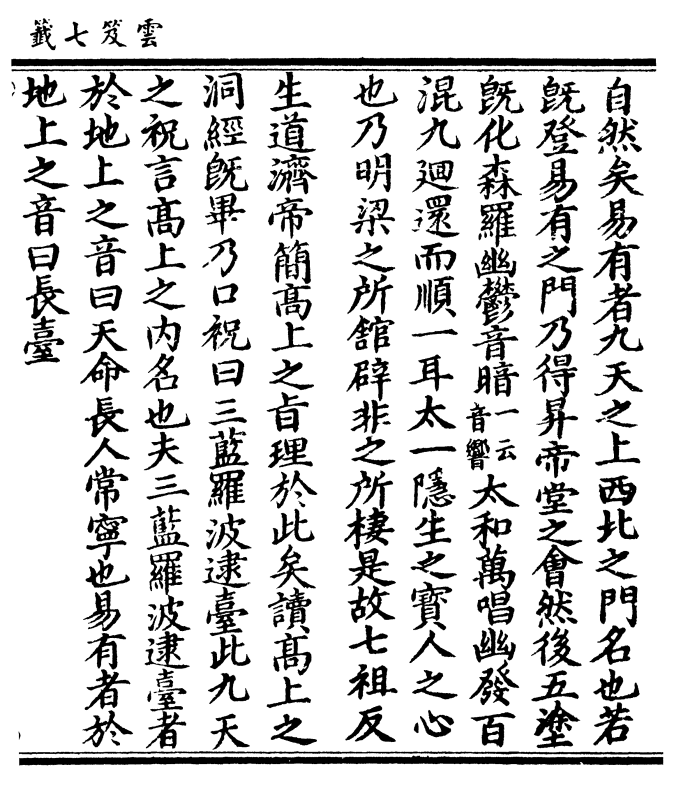 雲笈七籤
自然矣易有者九天之上西北之門名也若
旣登易有之門乃得昇帝堂之會然後五塗
旣化森羅幽鬱音暗一云音響太和萬唱幽發百
混九廻還而順一耳太一隱生之寳人之心
也乃明梁之所舘辟非之所棲是故七祖反
生道濟帝簡髙上之旨理於此矣讀髙上之
洞經旣畢乃口祝曰三藍羅波逮臺此九天
之祝言髙上之内名也夫三藍羅波逮臺者
於地上之音曰天命長人常寧也易有者於
地上之音曰長臺